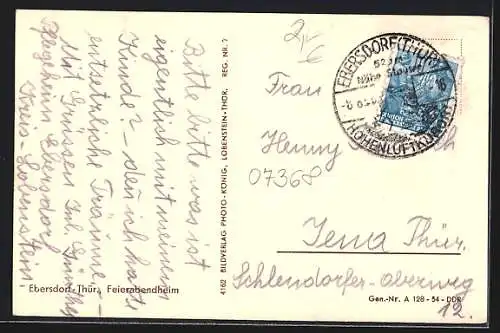 Bitte bitte was ist
eigentlich mit meinem
Kinde? – denn ich hatte
entsetzliche Träume –
Mit Grüssen Ihre
Pflegeheim Ebersdorf
Kreis – Lobenstein –
Ebersdorf-Thür., Feierabendheim
4162 BILDVERLAG PHOTO-KÖNIG, LOBENSTEIN-THÜR. REG. NR. 7
2,-
€
EBERSDORF (THÜR)
Nähe Stausee
HÖHENLUFTKURORT
Frau
Henny
07368
Jena Thür.
Schlendorfer-oberweg
12.
Gen.-Nr. A 128 - 54 - DDR